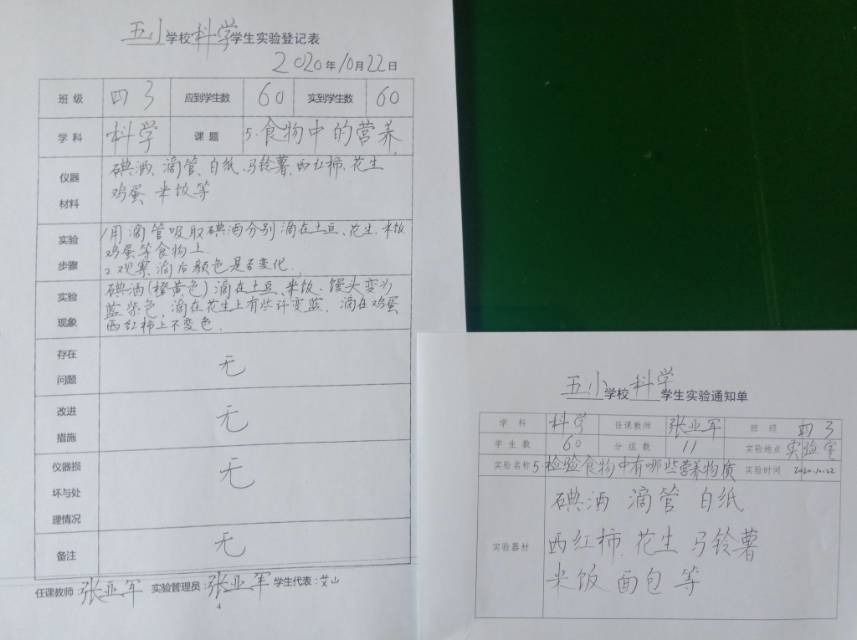 五小学校科学学生实验登记表
2020年10月22日
班级 四3 应到学生数 60 实到学生数 60
学科 科学 课题 5.食物中的营养
仪器材料 碘酒、滴管、白纸、马铃薯、西红柿、花生
鸡蛋 米饭等
实验步骤 1用滴管吸取碘酒分别滴在土豆、花生、米饭
鸡蛋等食物上
2观察滴后颜色是否变化.
实验现象 碘酒(橙黄色)滴在土豆、米饭、馒头变为
蓝紫色,滴在花生上有些许变蓝.滴在鸡蛋
西红柿上不变色.
存在问题 无
改进措施 无
仪器损坏与处理情况 无
备注 无
任课教师:张亚军 实验管理员:张亚军 学生代表:艾山
4
五小学校科学学生实验通知单
学科 科学 任课教师 张亚军 班级 四3
学生数 60 分组数 11 实验地点 实验室
实验名称 5.检验食物中有哪些营养物质 实验时间 2020.10.22
实验器材 碘酒 滴管 白纸
西红柿、花生 马铃薯
米饭 面包 等